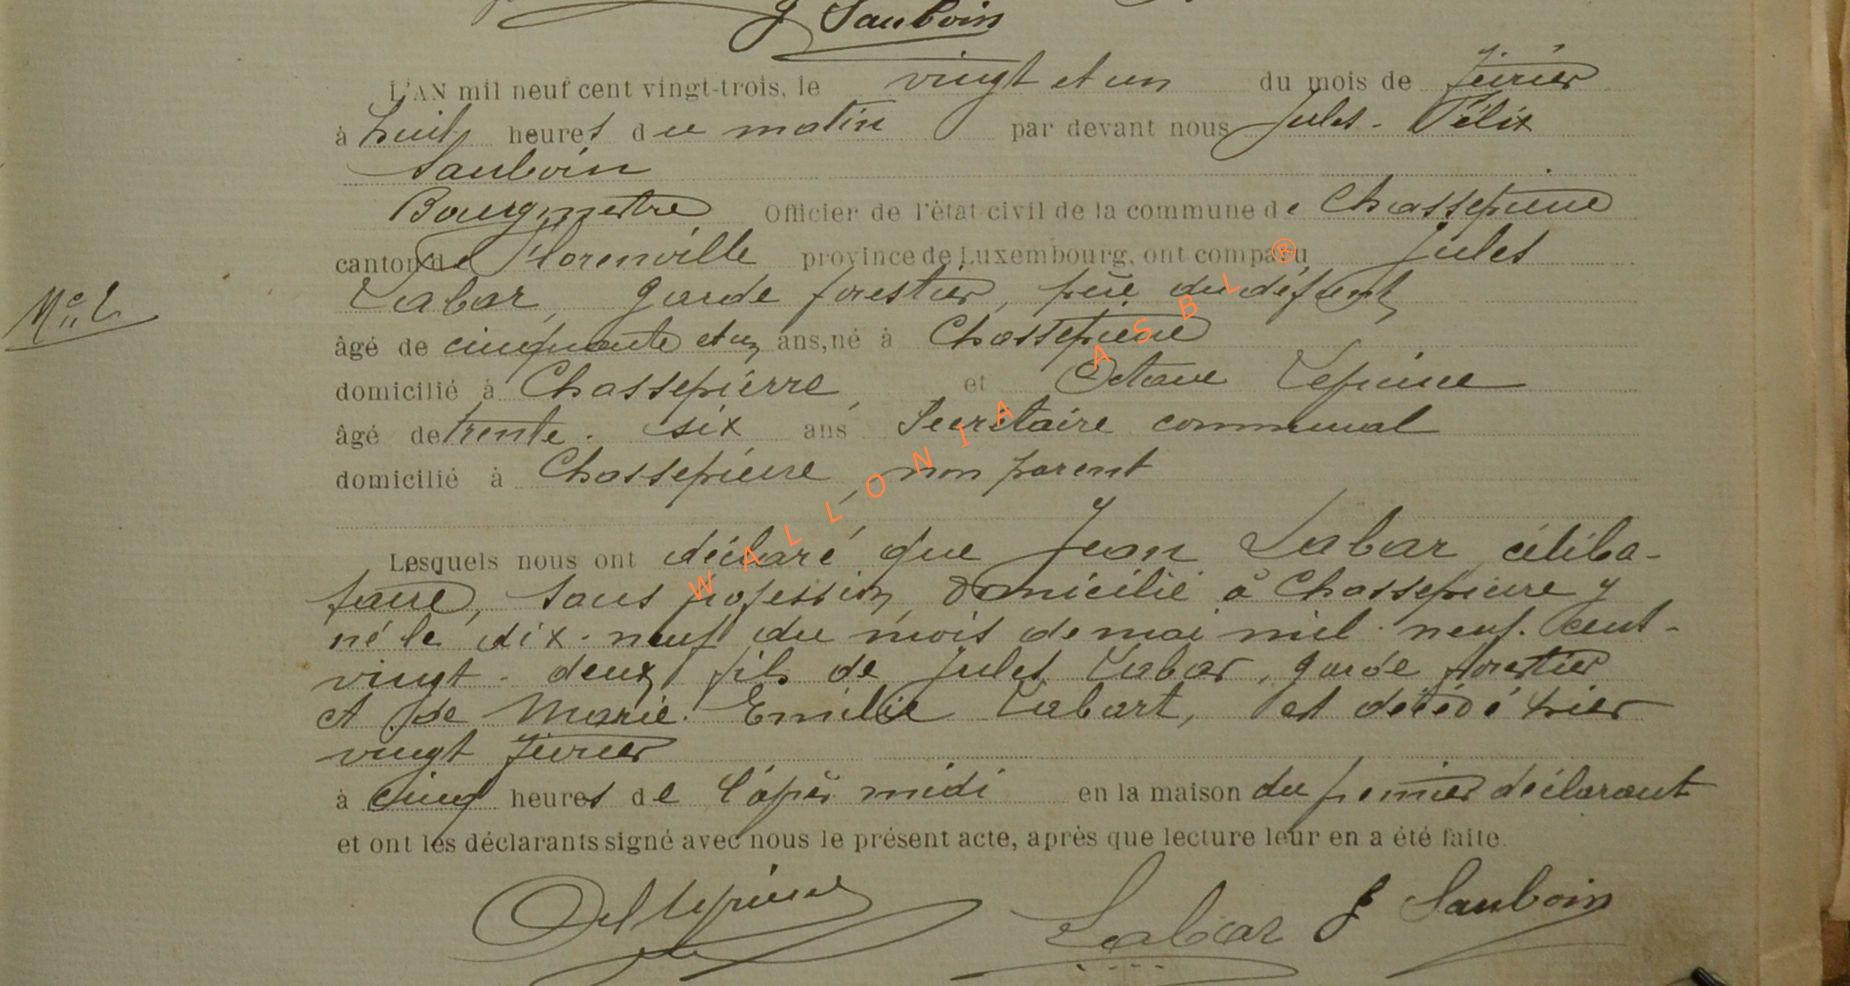 J Sauboin
L'AN mil neuf cent vingt-trois, le vingt et un du mois de février
à huit heures du matin par devant nous Jules-Félix
Sauboin
Bourgmestre Officier de l'état civil de la commune de Chassepierre
canton de Florenville province de Luxembourg, ont comparu Jules
Labar, garde forestier, père du défunt,
âgé de cinquante et un ans, né à Chassepierre
domicilié à Chassepierre, et Octave Lepine
âgé de trente-six ans Secrétaire communal
domicilié à Chassepierre, non parent
Lesquels nous ont déclaré que Jean Labar, céliba-
taire, sans profession, domicilié à Chassepierre y
né le dix-neuf du mois de mai mil-neuf-cent-
vingt-deux, fils de Jules Labar, garde forestier
et de Marie-Emilie Labart, est décédé hier
vingt février
à cinq heures de l'après midi en la maison du premier déclarant
et ont les déclarants signé avec nous le présent acte, après que lecture leur en a été faite.
Labar J Sauboin
WALLONIA ASBL ®